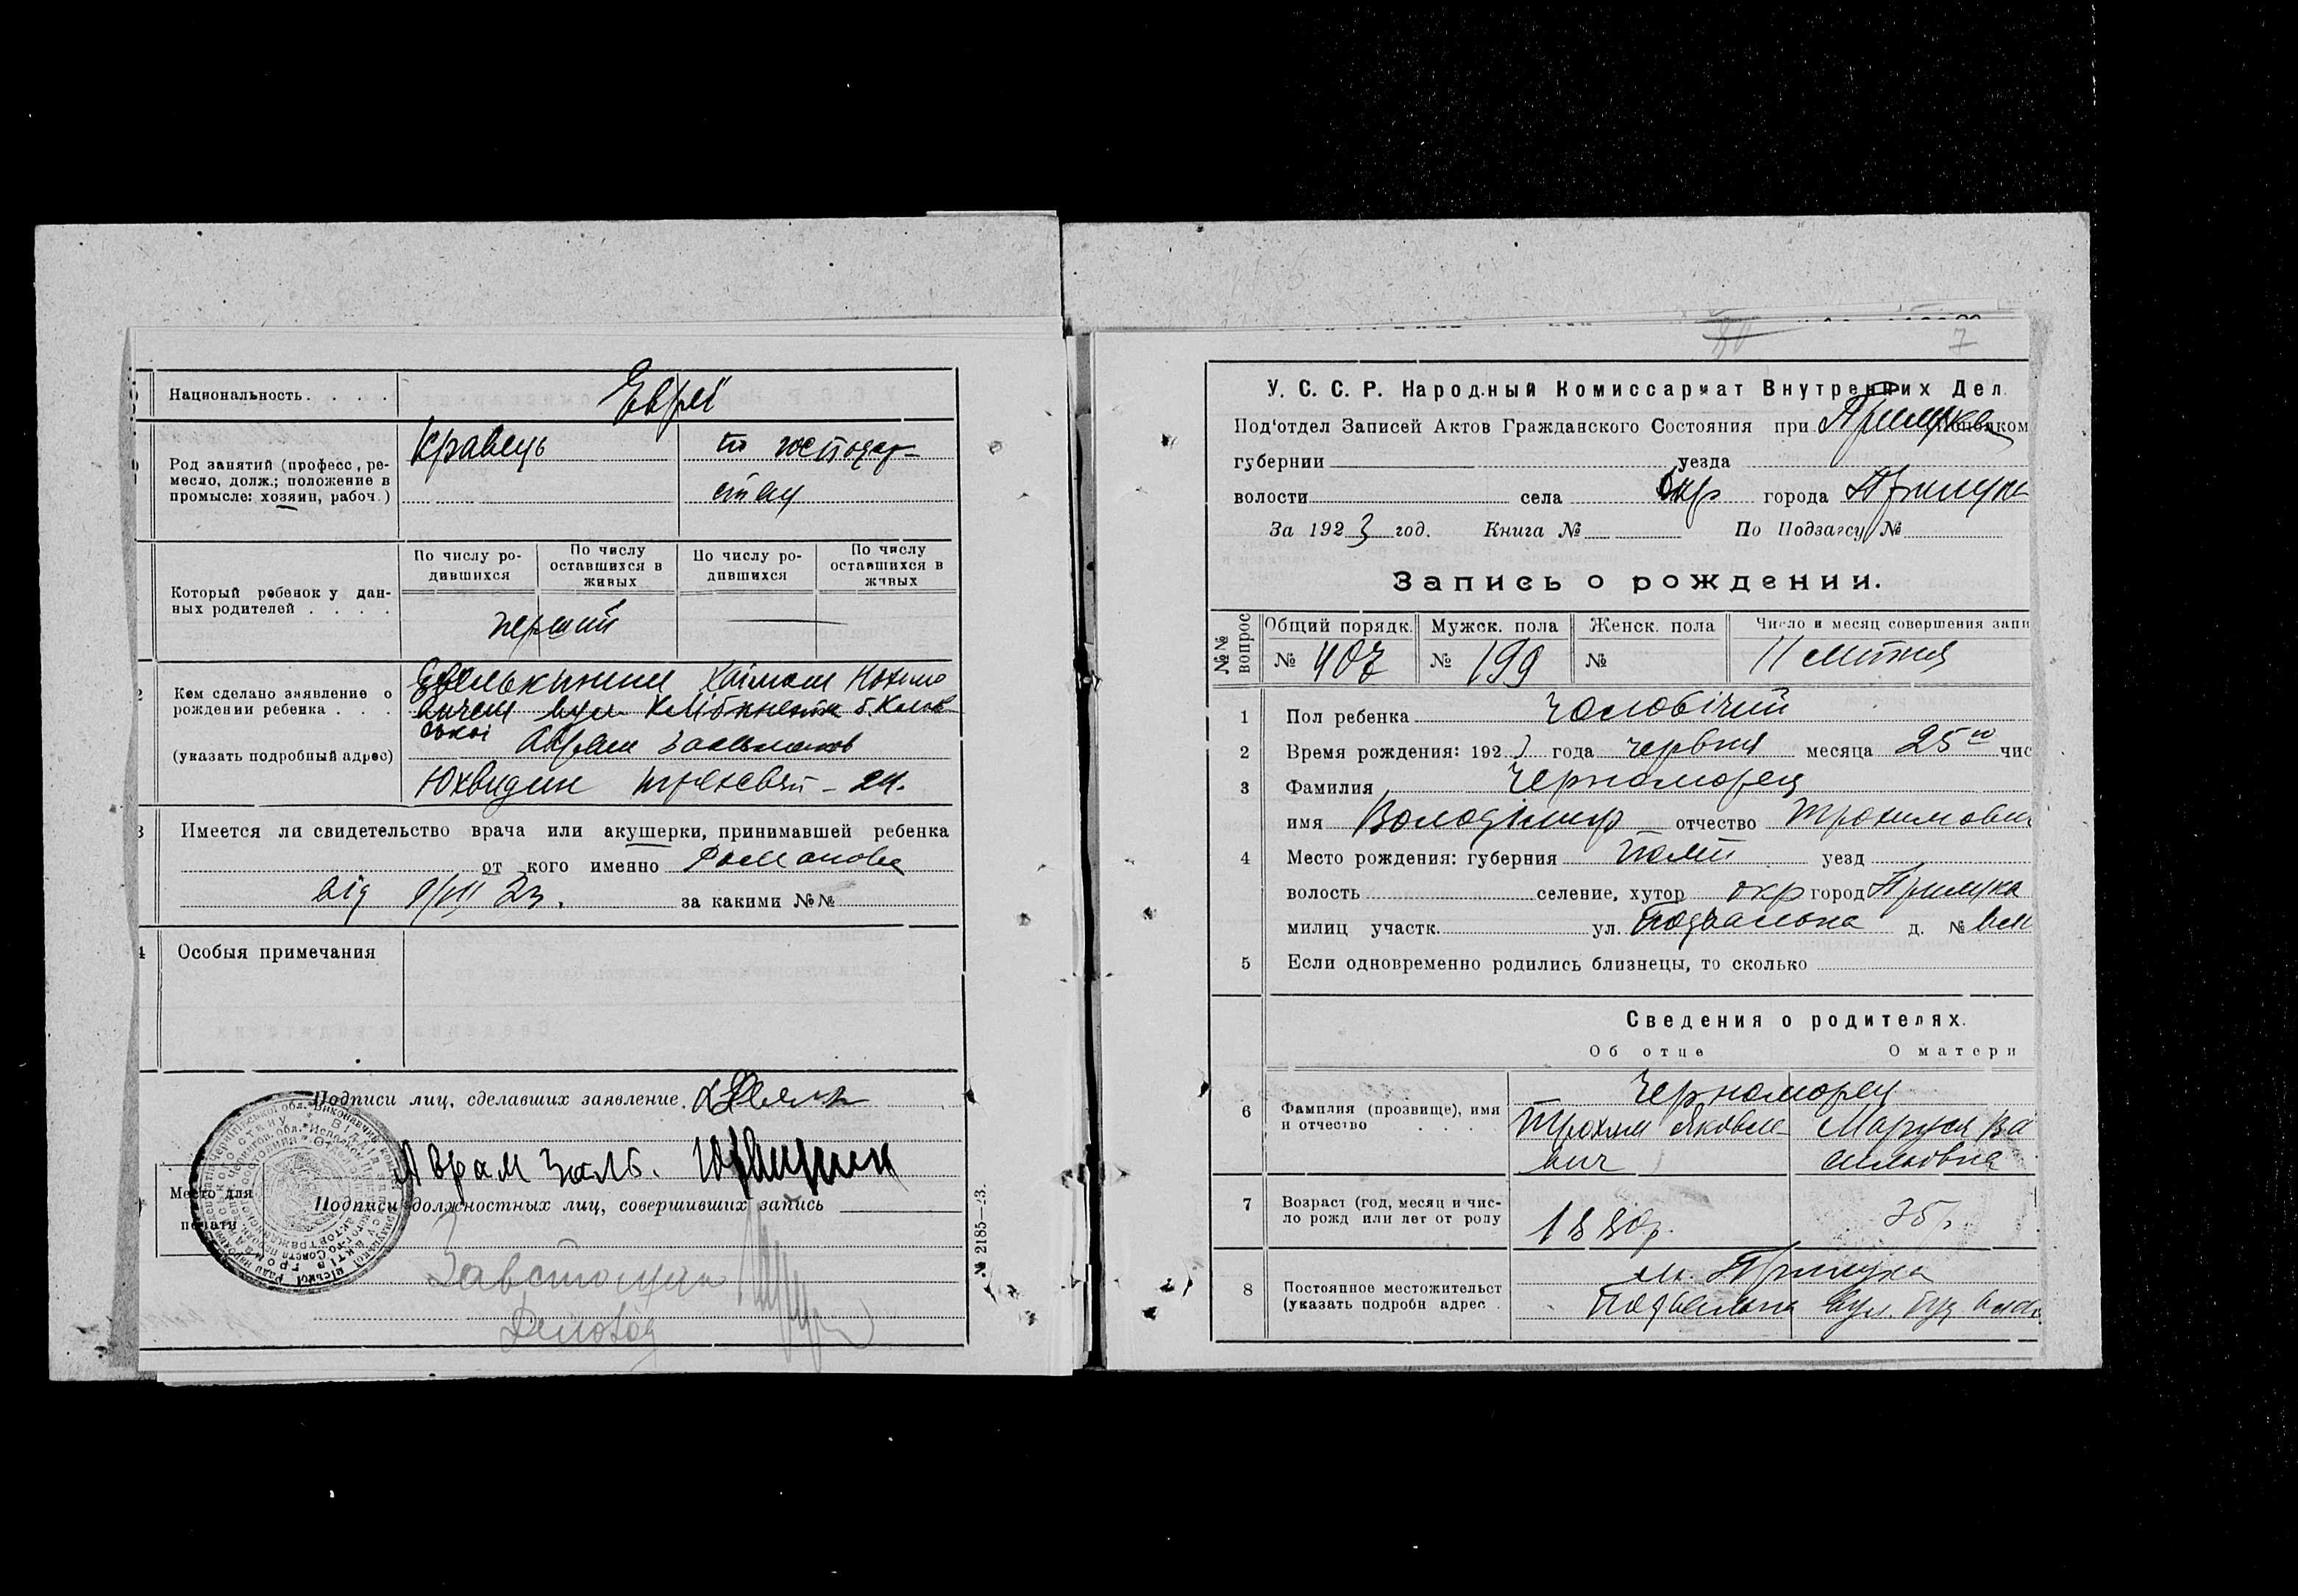 Национальность. . . . .
Еврей
Род занятий (професс, ре-
месло, долж.; положение в
промысле: хозяин, рабоч.)
Кравець
по господар-
ству
Который ребенок у дан-
ных родителей . . . .
По числу ро-
дившихся
По числу
оставшихся в
живых
По числу ро-
дившихся
По числу
оставшихся в
живых
перший
Кем сделано заявление о
рождении ребенка . . .
(указать подробный адрес)
Хаїмом Нохимо
вичем вул.
ської Аврам
Юхвидин - 24.
Имеется ли свидетельство врача или акушерки, принимавшей ребенка
от кого именно Романова
від 9/VII 23. за какими №№
Особыя примечания
Подписи лиц, сделавших заявление.
Аврам Залв.
Место для
печати
Подписи должностных лиц, совершивших запись
Завстолом
Деловод
№ 2185—23.
7
У. С. С. Р. Народный Комиссариат Внутренних Дел.
Под'отдел Записей Актов Гражданского Состояния при Прилука
губернии уезда
волости села окр города Прилуки
За 1923 год. Книга № По Подзагсу №
Запись о рождении.
№№ вопрос
Общий порядк. Мужск. пола Женск. пола Число и месяц совершения запи
№ 407 № 199 № 11 липня
1 Пол ребенка чоловічий
2 Время рождения: 1923 года червня месяца 25го чис
3 Фамилия Черноморец
имя Володімир отчество Трохимови
4 Место рождения: губерния Полт уезд
волость селение, хутор окр город Прилука
милиц участк. ул. Подвальна д. № влас
5 Если одновременно родились близнецы, то сколько
Сведения о родителях.
Об отце О матери
6 Фамилия (прозвище), имя
и отчество . . . .
Черноморец
Трохим Яковле-
вич
Маруся Ва
силовна
7 Возраст (год, месяц и чис-
ло рожд или лет от роду
1880р.
35р.
8 Постоянное местожительст
(указать подробн адрес .
м. Прилука
Подвальна вул. буд влас.